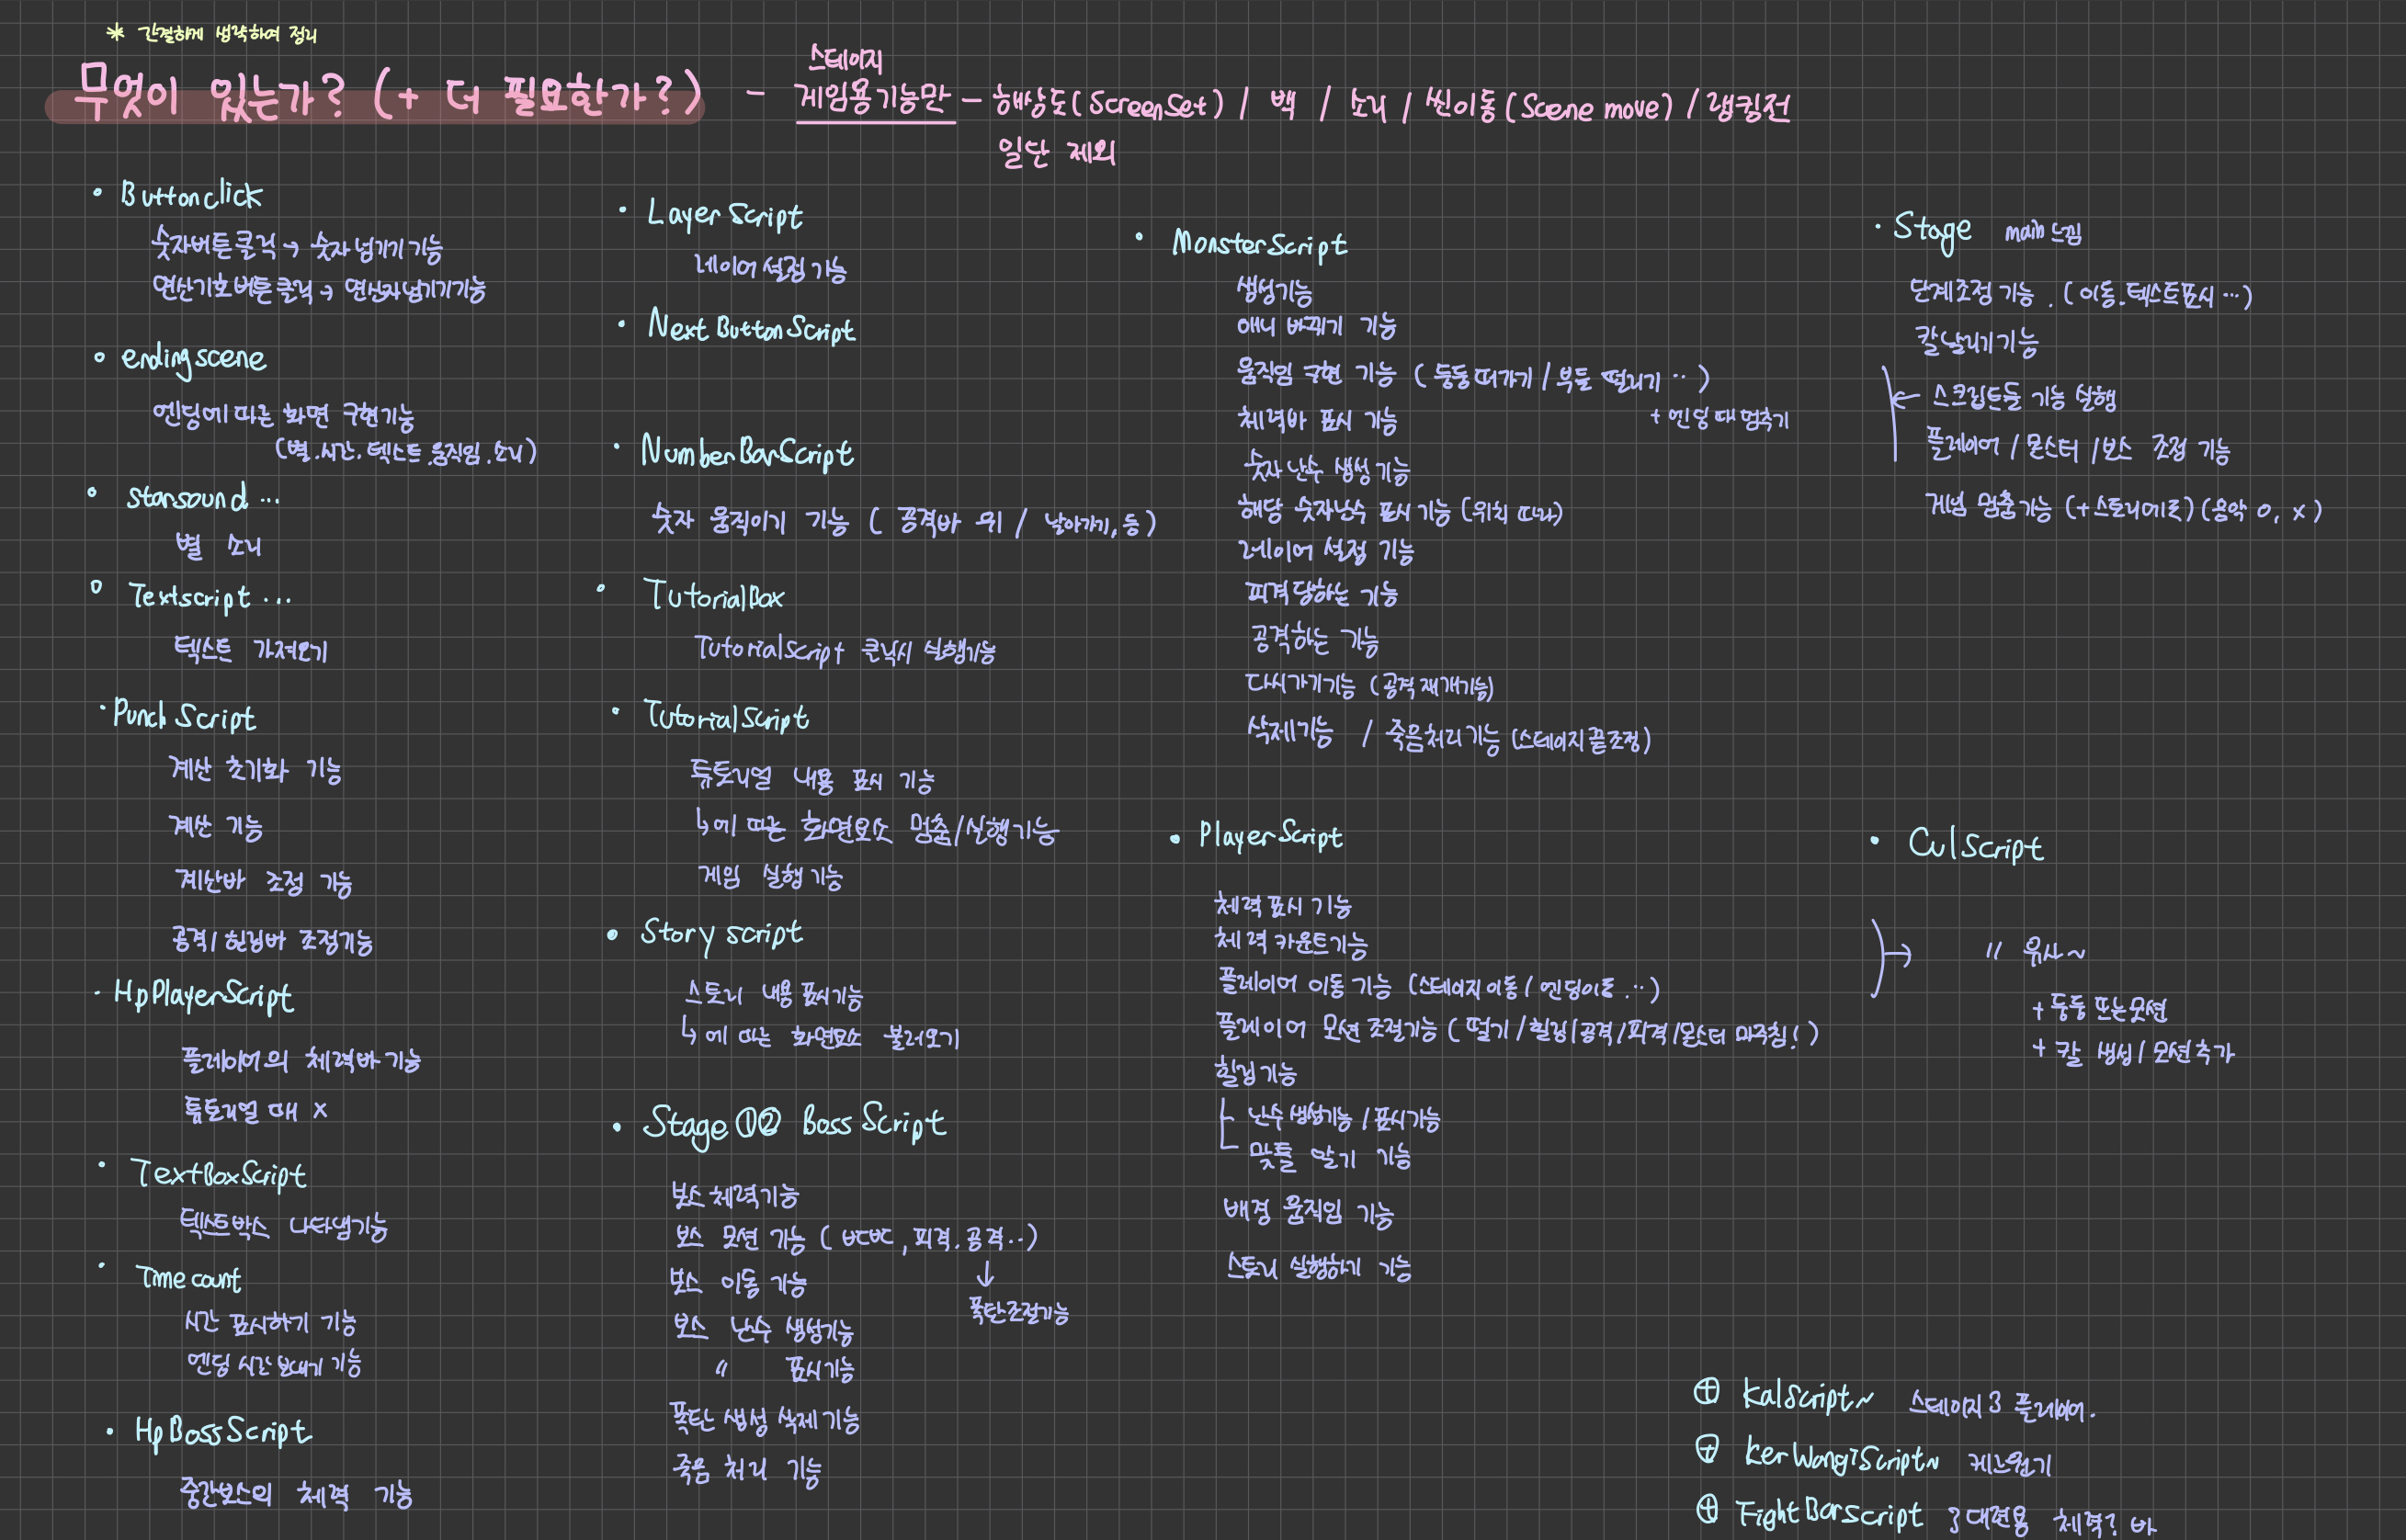 * 간결하게 생략하여 정리
무엇이 있는가? (+ 더 필요한가?) - 게임용기능만 - 해상도(ScreenSet) / 백 / 소리 / 씬이동(Scene move) / 랭킹전
스테이지
일단 제외
• Buttonclick
숫자버튼클릭 → 숫자 넘기기 기능
연산기호버튼클릭 → 연산자넘기기기능
• endingscene
엔딩에 따른 화면 구현기능
(별.시간.텍스트.움직임.소리)
• starsound ...
별 소리
• Textscript ...
텍스트 가져오기
• PunchScript
계산 초기화 기능
계산 기능
계산바 조정 기능
공격/힐링바 조정기능
• HpPlayerScript
플레이어의 체력바 기능
튜토리얼 때 X
• TextBoxScript
텍스트박스 나타냄기능
• Timecount
시간 표시하기 기능
엔딩 시간 보내기 기능
• HpBossScript
중간보스의 체력 기능
• LayerScript
레이어 설정 기능
• NextButtonScript
• NumberBarScript
숫자 움직이기 기능 ( 공격바 위 / 날아가기, 등)
• TutorialBox
TutorialScript 클릭시 실행기능
• TutorialScript
튜토리얼 내용 표시 기능
↳에 따른 화면요소 멈춤/실행기능
게임 실행기능
• Story script
스토리 내용 표시기능
↳에 따른 화면요소 불러오기
• Stage①② BossScript
보스 체력기능
보스 모션 기능 ( ㅂㄷㅂㄷ, 피격.공격..)
↓
폭탄조절기능
보스 이동 기능
보스 난수 생성기능
〃 표시기능
폭탄 생성 삭제기능
죽음 처리 기능
• MonsterScript
생성기능
애니 바꾸기 기능
움직임 구현 기능 ( 둥둥떠가기 / 부들 떨리기 .. )
+ 엔딩때 멈추기
체력바 표시 기능
숫자 난수 생성기능
해당 숫자난수 표시기능 (위치 따라)
레이어 설정 기능
피격당하는 기능
공격하는 기능
다시가기기능 (공격재개기능)
삭제기능 / 죽음처리기능 (스테이지끝조정)
• PlayerScript
체력표시 기능
체력 카운트기능
플레이어 이동 기능 (스테이지이동 / 엔딩이동 ..)
플레이어 모션 조절기능 ( 떨기/힐링/공격/피격/몬스터 마주침! )
힐링기능
난수생성기능 / 표시기능
맞틀 알기 기능
배경 움직임 기능
스토리 실행하기 기능
• Stage main느낌
단계조정 기능. (이동.텍스트표시...)
칼날리기기능
← 스크립트들 기능 실행
플레이어 / 몬스터 / 보스 조정 기능
게임 멈춤기능 (+스토리에도) (음악 O, X)
• CulScript
→ 〃 유사~
+ 둥둥 또는모션
+ 칼 생성/ 모션추가
⊕ KalScript~ 스테이지3 플레이어.
⊕ KerWongiScript~ 케르원기
⊕ FightBarScript 3대련용 체력? 바